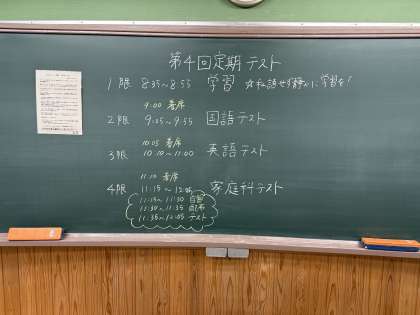 第4回定期テスト
1限 8:35～8:55 学習 ※私語せず静かに学習を!
9:00 着席
2限 9:05～9:55 国語テスト
10:05 着席
3限 10:10～11:00 英語テスト
11:10 着席
4限 11:15～12:05 家庭科テスト
11:15～11:30 自習
11:30～11:35 配布
11:35～12:05 テスト